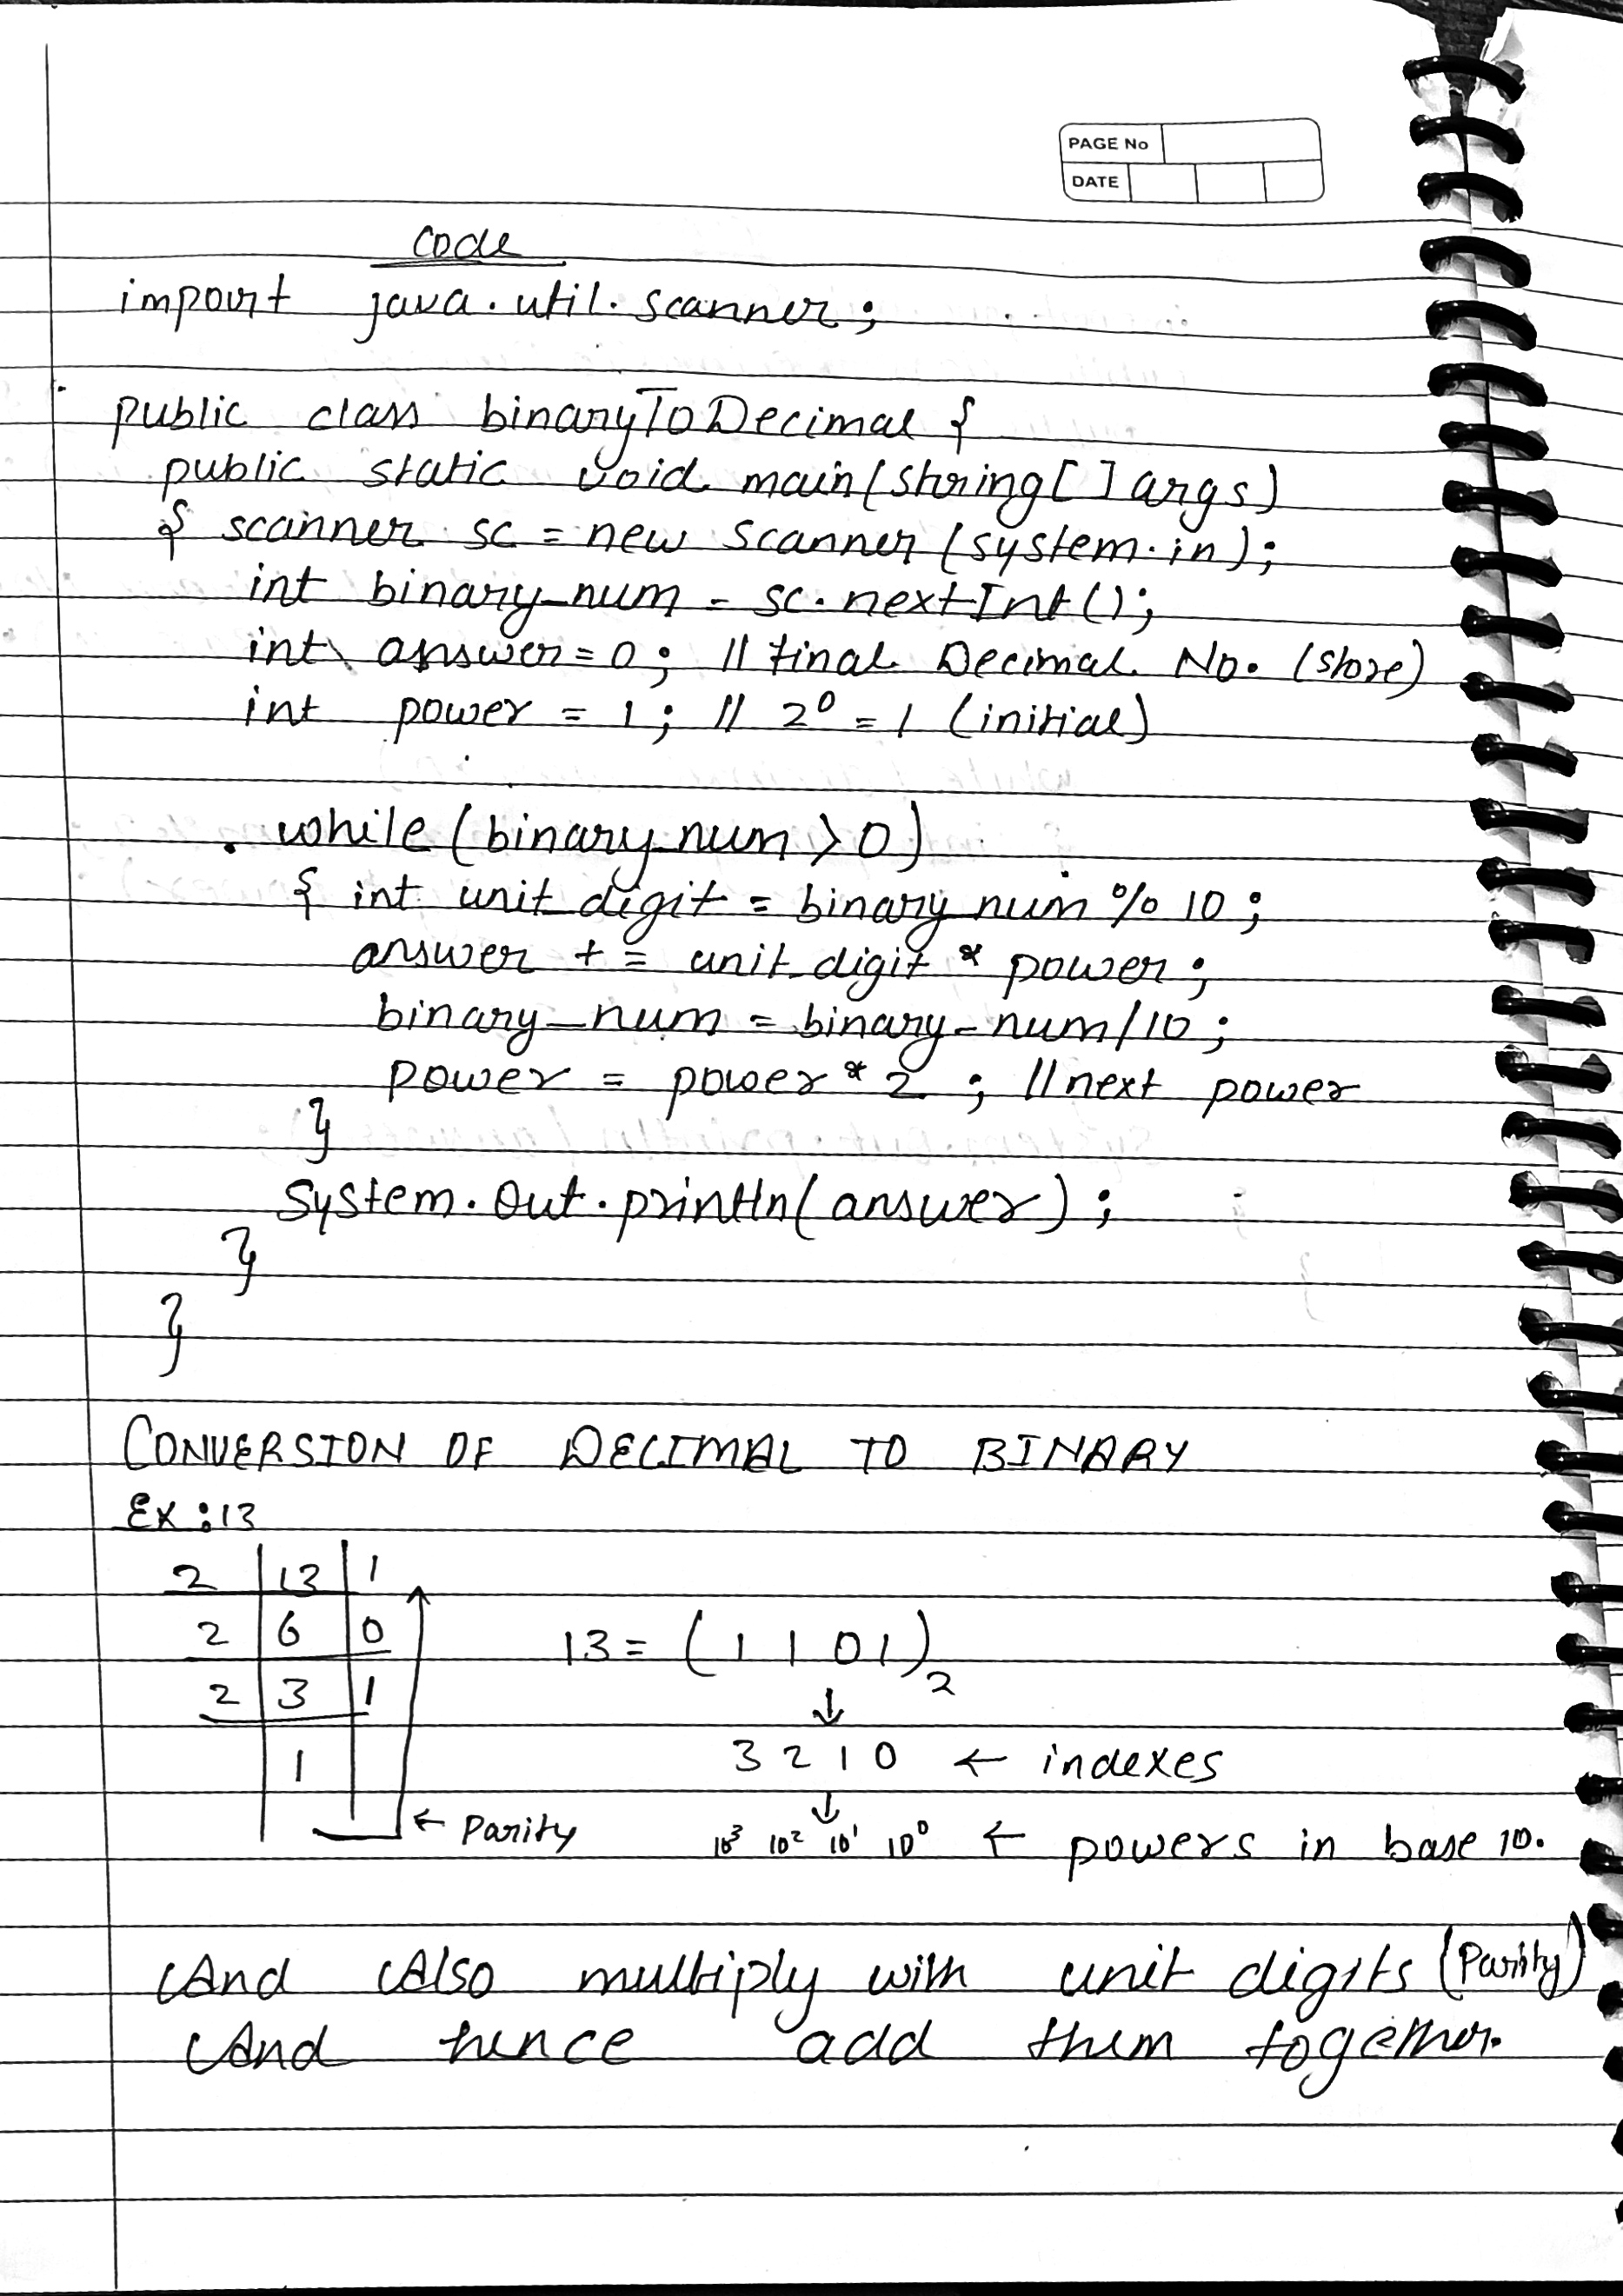 PAGE No
DATE
Code
import java.util.scanner;
public class binaryToDecimal {
public static void main(string[] args)
{ scanner sc = new scanner(system.in);
int binary_num = sc.nextInt();
int answer = 0; // final Decimal No. (store)
int power = 1; // 2⁰ = 1 (initial)
while (binary_num > 0)
{ int unit_digit = binary_num % 10;
answer += unit_digit * power;
binary_num = binary_num/10;
power = power * 2; // next power
}
System.out.println(answer);
}
}
CONVERSION OF DECIMAL TO BINARY
Ex: 13
2 | 13 | 1
2 | 6 | 0
2 | 3 | 1
1
← Parity
13 = (1101)₂
↓
3 2 1 0 ← indexes
↓
10³ 10² 10¹ 10⁰ ← powers in base 10.
And Also multiply with unit digits (Parity)
And hence add them together.